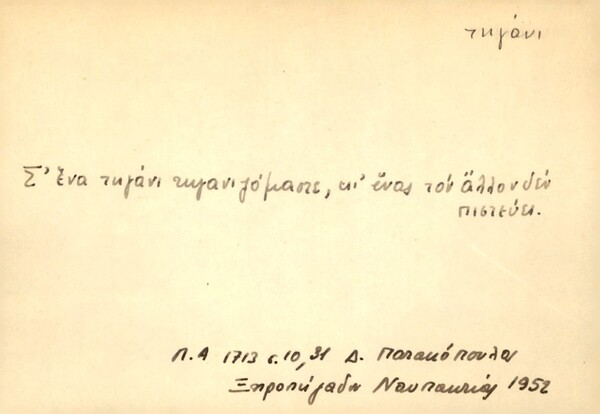 τηγάνι
Σ' ἕνα τηγάνι τηγανιζόμαστε, κι' ἕνας τὸν ἄλλον δὲν
πιστεύει.
Π.Α 1713 σ. 10, 31 Δ.
Ξηροπήγαδον Ναυπακτίας 1952